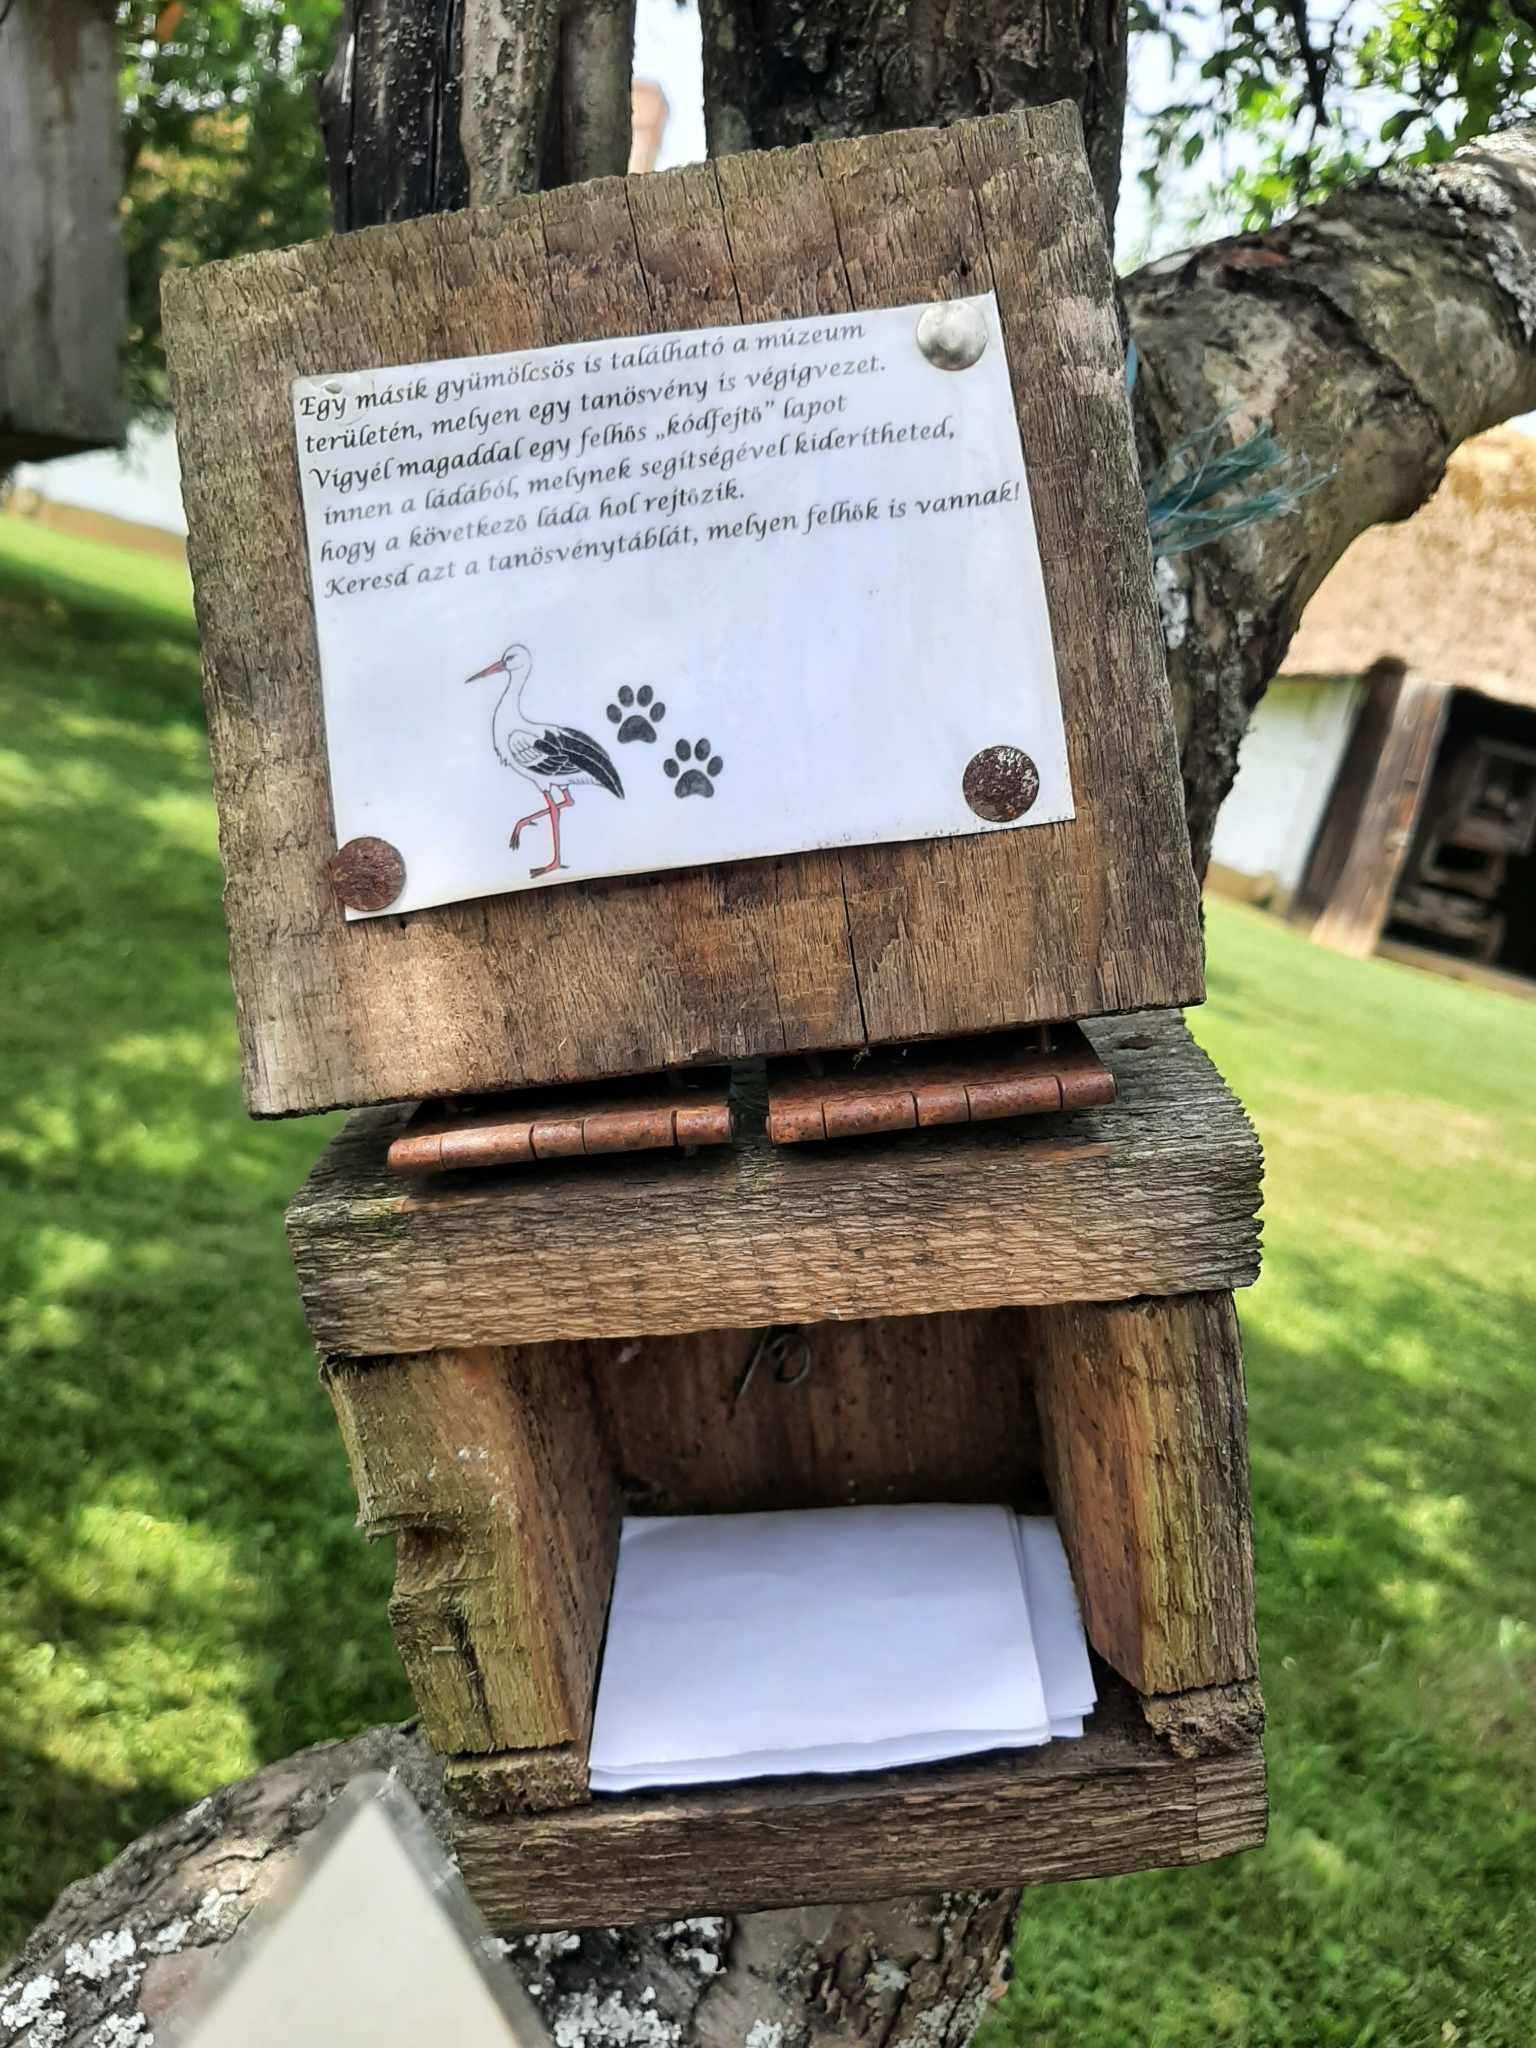 Egy másik gyümölcsös is található a múzeum
területén, melyen egy tanösvény is végigvezet.
Vigyél magaddal egy felhős „kódfejtő” lapot
innen a ládából, melynek segítségével kiderítheted,
hogy a következő láda hol rejtőzik.
Keresd azt a tanösvénytáblát, melyen felhők is vannak!